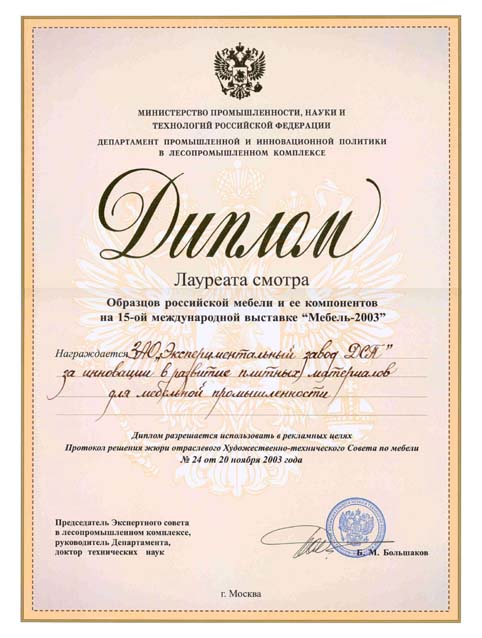 МИНИСТЕРСТВО ПРОМЫШЛЕННОСТИ, НАУКИ И
ТЕХНОЛОГИЙ РОССИЙСКОЙ ФЕДЕРАЦИИ
ДЕПАРТАМЕНТ ПРОМЫШЛЕННОЙ И ИННОВАЦИОННОЙ ПОЛИТИКИ
В ЛЕСОПРОМЫШЛЕННОМ КОМПЛЕКСЕ
Диплом
Лауреата смотра
Образцов российской мебели и ее компонентов
на 15-ой международной выставке “Мебель-2003”
Награждается ЗАО „Экспериментальный завод ДСП”
за инновации в развитие плитных материалов
для мебельной промышленности
Диплом разрешается использовать в рекламных целях
Протокол решения жюри отраслевого Художественно-технического Совета по мебели
№ 24 от 20 ноября 2003 года
Председатель Экспертного совета
в лесопромышленном комплексе,
руководитель Департамента,
доктор технических наук
Б. М. Большаков
г. Москва